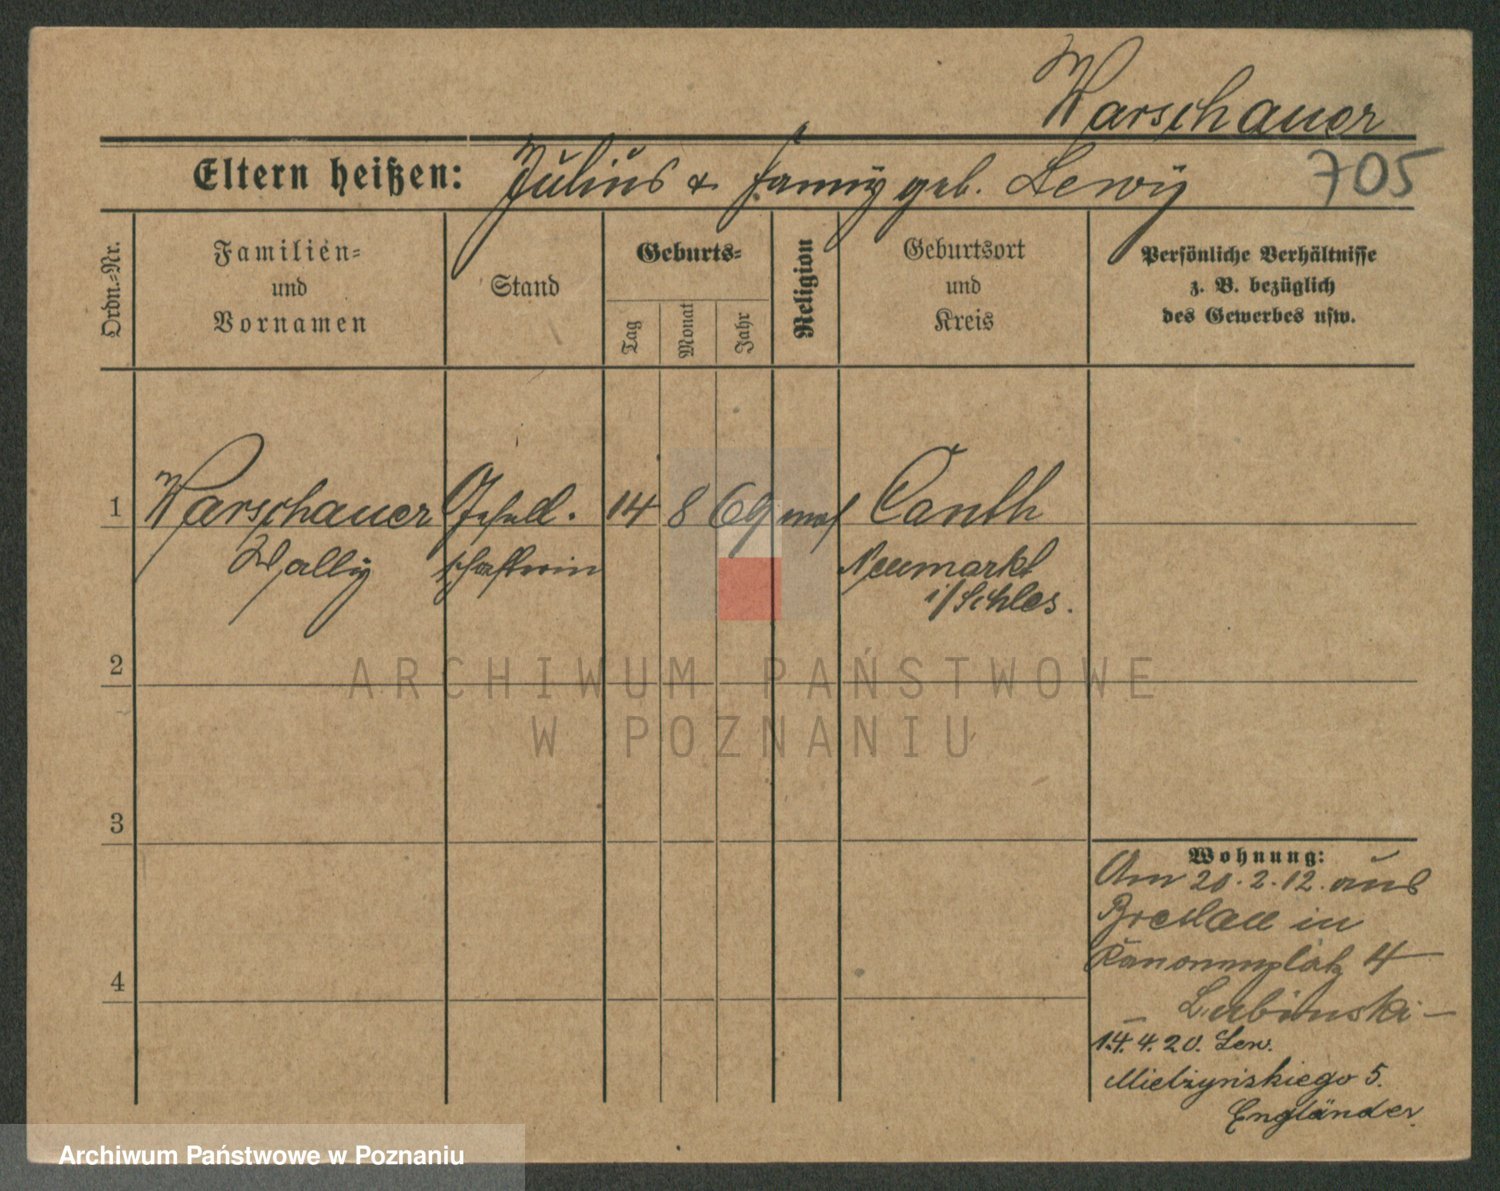 Warschauer
Eltern heißen: Julius & Fanny geb. Lewy
705
Ordn.-Nr.
Familien-
und
Vornamen
Stand
Geburts-
Tag
Monat
Jahr
Religion
Geburtsort
und
Kreis
Persönliche Verhältnisse
z. B. bezüglich
des Gewerbes usw.
1 Warschauer Gesell. 14 8 69 mos Canth
Wally schafterin Neumarkt
i/Schles.
2
3
4
Wohnung:
Am 20.2.12. aus
Breslau in
Kanonenplatz 4
Lubinski -
14.4.20. Sew.
Mielżyńskiego 5.
Engländer.
ARCHIWUM PAŃSTWOWE
W POZNANIU
Archiwum Państwowe w Poznaniu